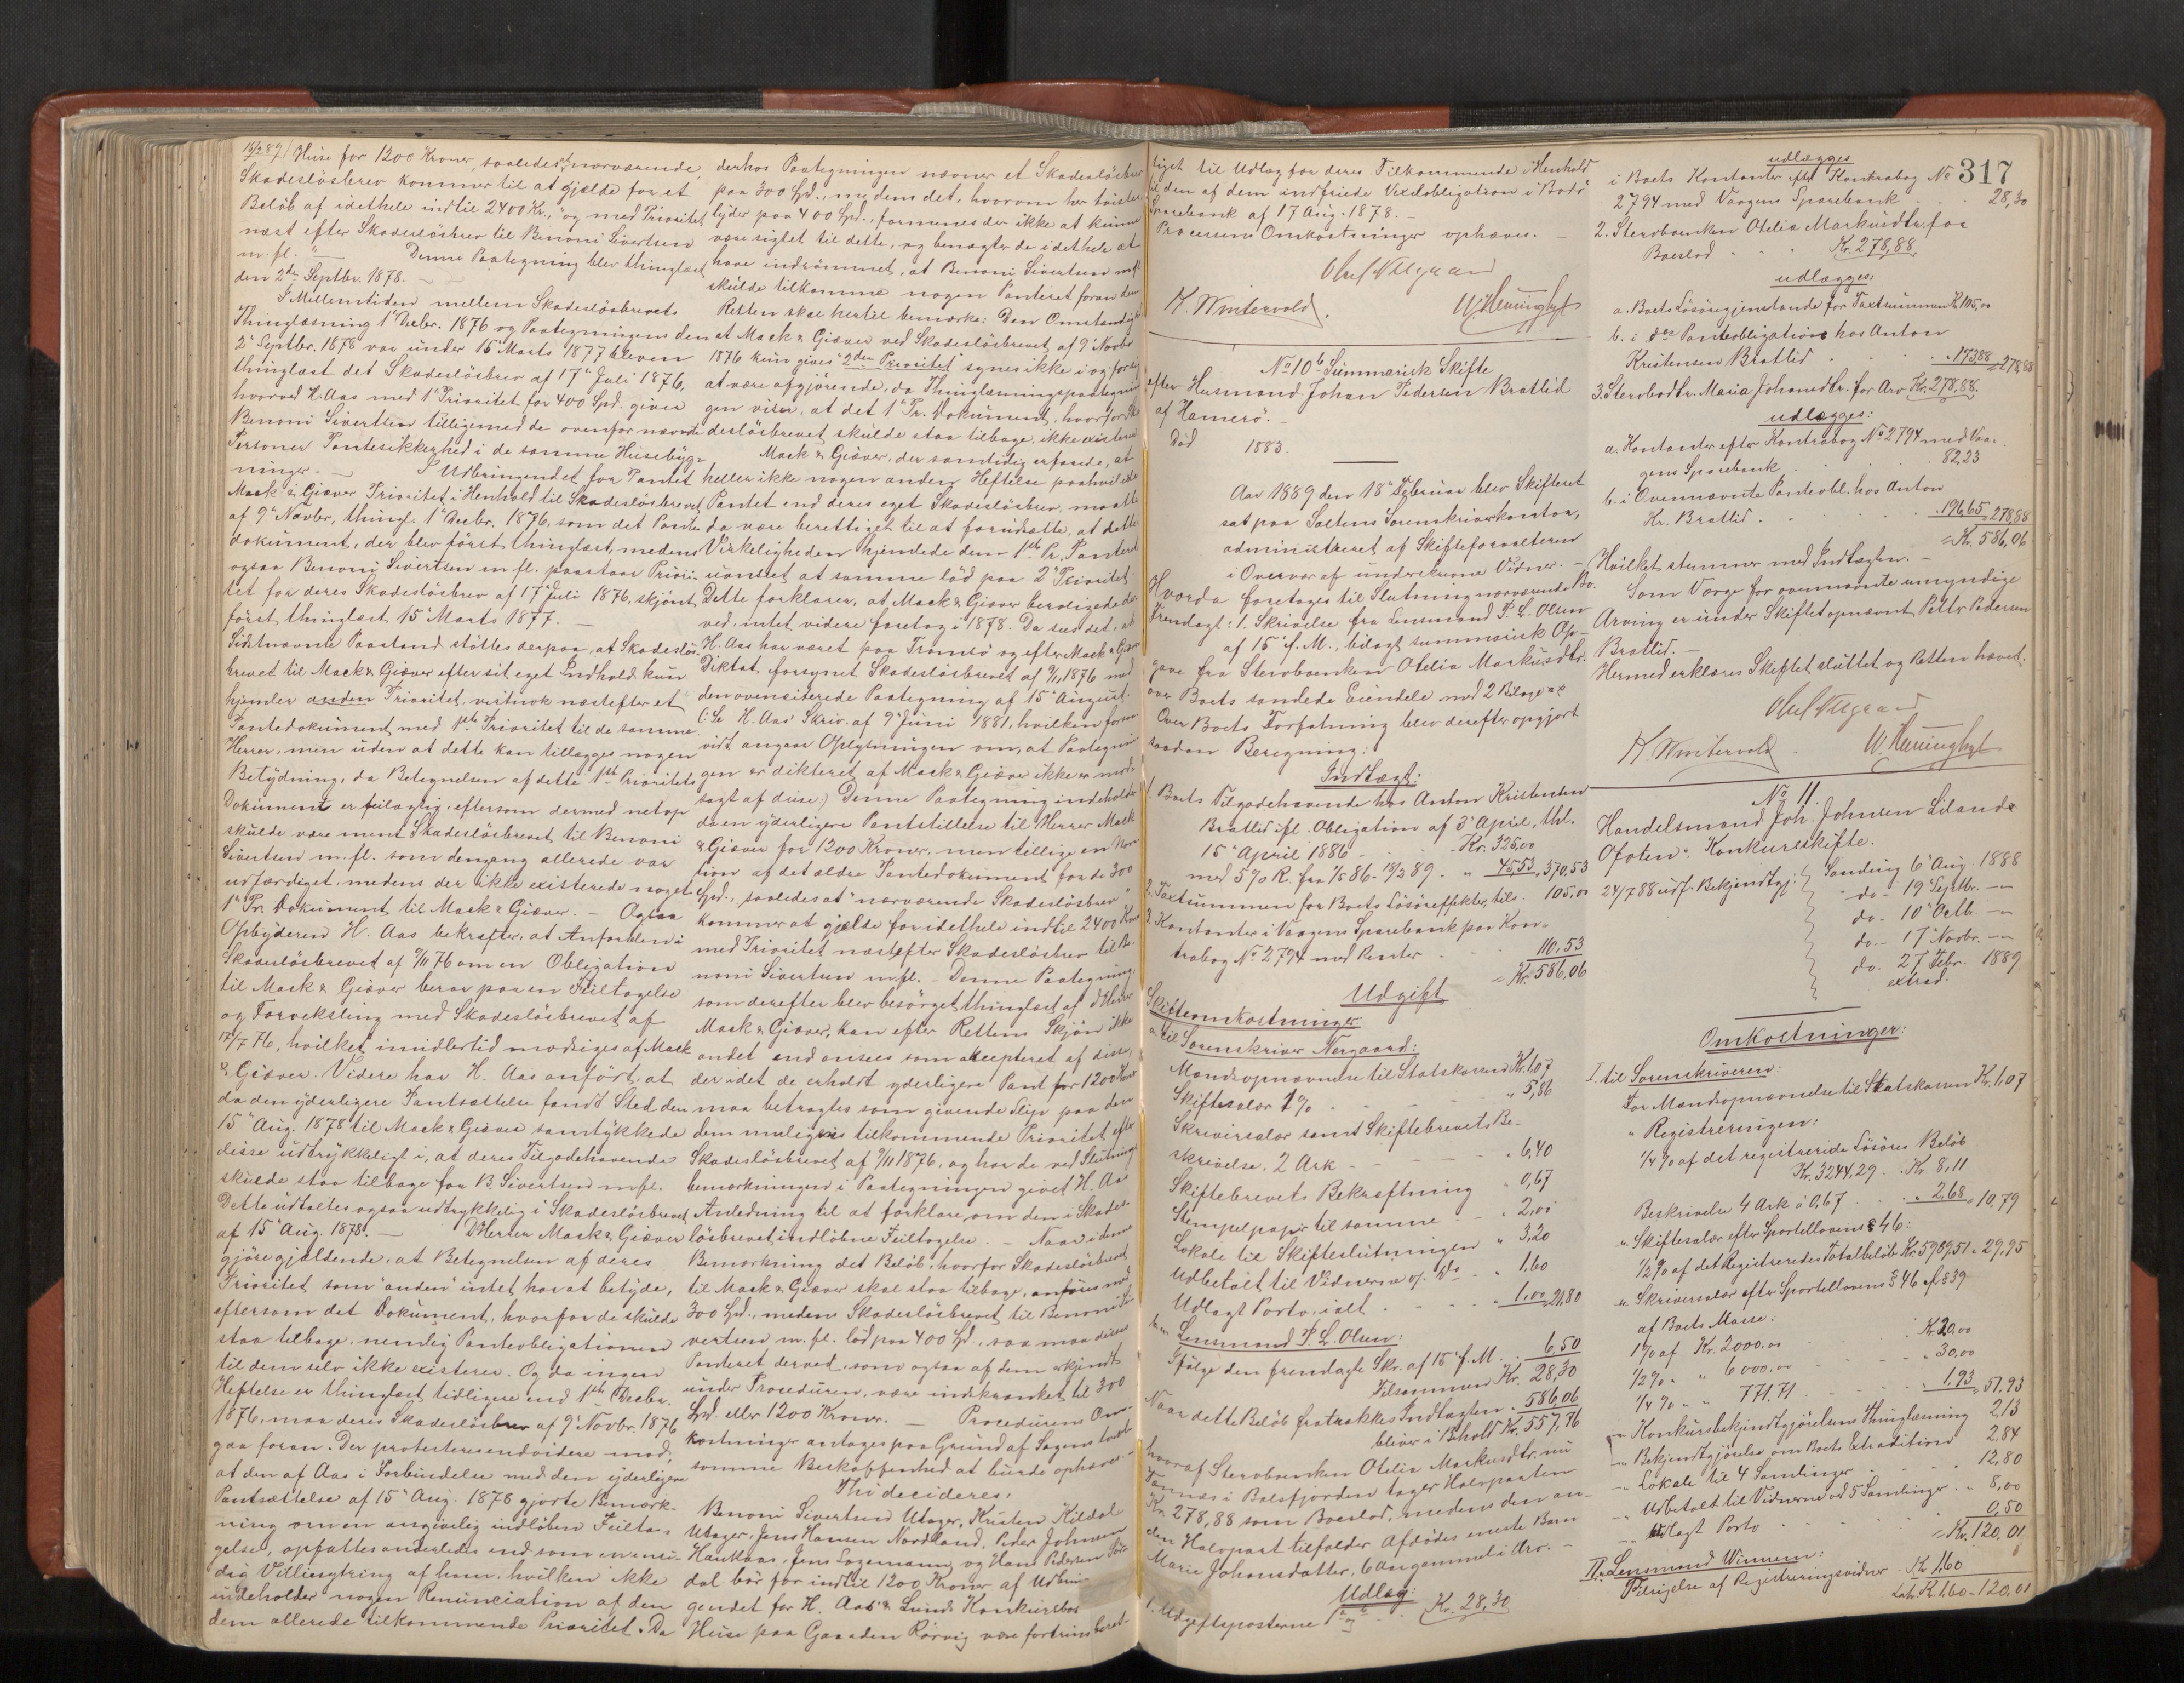 15/2 89) Huse for 1200 Kroner, saaledes at nærværende
Skadesløsbrev kommer til at gjælde for et
Beløb af idethele indtil 2400 Kr., "og med Prioritet
næst efter Skadesløsbrev til Benoni Sivertsen
m. fl." Denne Paategning blev thinglæst
den 2den Septbr. 1878. —
I Mellemtiden mellem Skadesløsbrevets
Thinglæsning 1' Decbr. 1876 og Paategningens den
2' Septbr. 1878 var under 15' Marts 1877 bleven
thinglæst det Skadesløsbrev af 17' Juli 1876,
hvorved H. Aas med 1' Prioritet for 400 Spd. giver
Benoni Sivertsen tilligemed de ovenfor nævnte
Personer Pantesikkerhed i de samme Husebyg-
ninger. — I Udbringendet for Pantet
Mack & Giæver Prioritet i Henhold til Skadesløsbrevet
af 9' Novbr., thingl. 1' Decbr. 1876, som det Pante-
dokument, der blev først thinglæst, medens
ogsaa Benoni Sivertsen m. fl. paastaar Priori-
tet for deres Skadesløsbrev af 17' Juli 1876, skjønt
først thinglæst 15' Marts 1877. —
Sidstnævnte Paastand støttes derpaa, at Skadesløs-
brevet til Mack & Giæver efter sit eget Indhold kun
hjemler anden Prioritet, vistnok næstefter et
Pantedokument med 1ste Prioritet til de samme
Herrer, men uden at dette kan tillægges nogen
Betydning, da Betegnelsen af dette 1ste Prioritets
Dokument er feilagtig, eftersom dermed netop
skulde være ment Skadesløsbrevet til Benoni
Sivertsen m. fl. som dengang allerede var
udfærdiget, medens der ikke existerede noget
1' Pr. Dokument til Mack & Giæver. — Ogsaa
Opbyderen H. Aas bekræfter, at Anførslen i
Skadesløsbrevet af 9/11 76 om en Obligation
til Mack & Giæver beror paa en Feiltagelse
og Forveksling med Skadesløsbrevet af
17/7 76, hvilket imidlertid modsiges af Mack
& Giæver. Videre har H. Aas anført, at
da den yderligere Pantsættelse fandt Sted den
15' Aug. 1878 til Mack & Giæver samtykkede
disse udtrykkeligt i, at deres Tilgodehavende
skulde staa tilbage for B. Sivertsen m. fl.
Dette udtaltes ogsaa udtrykkelig i Skadesløsbrevet
af 15' Aug. 1878. — D'Herrer Mack & Giæver
gjøre gjældende, at Betegnelsen af deres
Prioritet som "anden" intet har at betyde,
eftersom det Dokument, hvorfor de skulde
staa tilbage, nemlig Panteobligationen
til dem selv ikke existerer. Og da ingen
Heftelse er thinglæst tidligere end 1ste Decbr.
1876, maa deres Skadesløsbrev af 9' Novbr. 1876
gaa foran. Der protesteres endvidere mod,
at den af Aas i Forbindelse med den yderligere
Pantsættelse af 15' Aug. 1878 gjorte Bemærk-
ning om en angivelig indløben Feilta-
gelse, opfattes anderledes end som en ensi-
dig Villiesytring af ham, hvilken ikke
indeholder nogen Renunciation af den
dem allerede tilkommende Prioritet. Da
derhos Paategningen nævner et Skadesløsbrev
paa 300 Spd., medens det, hvorom her tvistes,
lyder paa 400 Spd., formenes der ikke at kunne
være sigtet til dette, og benægter de idethele at
have indrømmet, at Benoni Sivertsen m. fl.
skulde tilkomme nogen Panteret foran dem.
Retten skal hertil bemærke: Den Omstændighed
at Mack & Giæver ved Skadesløsbrevet af 9' Novbr
1876 kun gives "2den Prioritet" synes ikke i og for sig
at være afgjørende, da Thinglæsningspaategnin-
gen viser, at det 1' Pr. Dokument, hvorfor Ska-
desløsbrevet skulde staa tilbage, ikke existerer.
Mack & Giæver, der samtidig erfarede, at
heller ikke nogen anden Heftelse paahvilede
Pantet end deres eget Skadesløsbrev, maatte
da være berettiget til at forudsætte, at dette
i Virkeligheden hjemlede dem 1ste Pr. Panteret
uanset at samme lød paa 2' Prioritet.
Dette forklarer, at Mack & Giæver beroligede der-
ved, intet videre foretog i 1878. Da sees det, at
H. Aas har været paa Tromsø og efter Mack & Giævers
Diktat forsynet Skadesløsbrevet af 9/11 1876 med
den ovenciterede Paategning af 15' August.
(: Se H. Aas' Skriv. af 9' Juni 1881, hvilken forsaa-
vidt angaar Oplysningen om, at Paategnin-
gen er dikteret af Mack & Giæver ikke er mod-
sagt af disse:) Denne Paategning indeholder
da en yderligere Pantstillelse til Herrer Mack
& Giæver for 1200 Kroner, men tillige en No-
tion af det ældre Pantedokument for de 300
Spd., saaledes at "nærværende Skadesløsbrev
kommer at gjælde for idethele indtil 2400 Kroner
med Prioritet næstefter Skadesløsbrev til Be-
noni Sivertsen m. fl. — Denne Paategning,
som derefter blev besørget thinglæst af d'Herrer
Mack & Giæver, kan efter Rettens Skjøn ikke
andet end ansees som akcepteret af disse,
der idet de erholdt yderligere Pant for 1200 Kroner
maa betragtes som givende Slip paa den
dem muligens tilkommende Prioritet efter
Skadesløsbrevet af 9/11 1876, og har de ved Slutnings-
bemærkningen i Paategningen givet H. Aas
Anledning til at forklare om den i Skades-
løsbrevet indløbne Feiltagelse. — Naar i denne
Bemærkning det Beløb, hvorfor Skadesløsbrevet
til Mack & Giæver skal staa tilbage, anføres med
300 Spd., medens Skadesløsbrevet til Benoni Si-
vertsen m. fl. lød paa 400 Spd., saa maa disses
Panteret derved, som ogsaa af dem erkjendt
under Proceduren, være indskrænket til 300
Spd. eller 1200 Kroner. — Procedurens Om-
kostninger antages paa Grund af Sagens tvivl-
somme Beskaffenhed at burde ophæves. —
Thi decideres:
Benoni Sivertsen Utager, Kristen Kildal
Utager, Jens Hansen Nordland, Peder Johnsen
Hauklaas, Jens Sagemann og Hans Pedersen
dal bør for indtil 1200 Kroner af Udbrin-
gendet for H. Aas' & Lunds Konkursbos
Huse paa Gaarden Rørvig være fortrinsberet-
tiget til Udlæg for deres Tilkommende i Henhold
til den af dem indfriede Vexelobligation i Bodø
Sparebank af 17 Aug. 1878. —
Processens Omkostninger ophæves. —
K. Wintervold.
No 10 b Summarisk Skifte
efter Husmand Johan Pedersen Bratlid
af Hamerø. —
Død 1883.
Aar 1889 den 18' Februar blev Skifteret
sat paa Saltens Sorenskriverkontor,
administreret af Skifteforvalteren
i Overvær af underskrevne Vidner. —
Hvorda foretoges til Slutning nærværende Bo.
Fremlagt: 1. Skrivelse fra Lensmand P. L. Olsen
af 15' f. M., bilagt summarisk Op-
gave fra Sterboenken Otelia Markusdtr.
over Boets samlede Eiendele med 2 Bilage
Over Boets Forfatning blev derefter opgjort
saadan Beregning:
Indtægt:
1. Boets Tilgodehavende hos Anton Kristensen
Bratlid ifl. Obligation af 3' April, thl.
15' April 1886 . Kr. 325,00
med 5 % R. fra 1/5 86 - 18/2 89. " 45,53, 370,53
2. Taxtsummen for Boets Løsøreffekter, tils. 105,00
3. Kontanter i Vaagens Sparebank paa Kon-
trabog No 2794 med Renter . . 110,53
= Kr. 586,06
Udgift
Skifteomkostninger
a. til Sorenskriver Nergaard:
Mandsopnævnelse til Statskassen Kr. 1,07
Skiftesalær 1 % . . " 5,86
Skriversalær samt Skiftebrevets Be-
skrivelse, 2 Ark . . " 6,40
Skiftebrevets Bekræftning " 0,67
Stempelpapir til samme - - " 2,00
Lokale til Skifteslutningen " 3,20
Udbetalt til Vidnerne v/ Do . " 1,60
Udlagt Porto, ialt . . . 1,00 21,80
Lensmand P. L. Olsen:
Ifølge den fremlagte Skr. af 15' f. M. . . 6,50
Tilsammen Kr. 28,30
Naar dette Beløb fratrækkes Indtægten . 586,06
bliver i Behold Kr. 557,76
hvoraf Sterboenken Otelia Markusdtr. nu
i Balsfjorden tager Halvparten
Kr. 278,88 som Boeslod, medens den an-
den Halvpart tilfalder Afdødes eneste Barn
Marie Johansdatter, 6 Aar gammel i Arv. —
Udlæg:
1. Udgiftsposterne 1 a og b . . Kr. 28,30
317
udlægges
i Boets Kontanter efter Kontrabog No
2794 med Vaagens Sparebank . . . 28,30
2. Sterboenken Otelia Markusdtr. for
Boeslod . . Kr. 278,88
udlægges:
a. Boets Løsøregjenstande for Taxtsummen Kr. 105,00
b. i Panteobligation hos Anton
Kristensen Bratlid . . . " 173,88 = 278,88
3. Sterbodtr. Maria Johansdtr. for Arv Kr. 278,88.
udlægges:
a. Kontanter efter Kontrabog No 2794 med Vaa-
gens Sparebank . . . 82,23
b. i Ovennævnte Panteobl. hos Anton
Kr. Bratlid . . . . 196,65 = 278,88
= Kr. 586,06
Hvilket stemmer med Indtægten. —
Som Værge for ovennævnte umyndige
Arving er under Skiftet opnævnt Petter Pedersen
Bratlid. —
Hermed erklæres Skiftet sluttet og Retten hævet.
K. Wintervold.
No 11.
Handelsmand Joh. Johnsen Liland
Ofoten", Konkursskifte.
24/7 88 udf. Bekjendtgj: Samling 6' Aug. 1888
do - 19' Septbr. —
do - 10' Octb. —
do - 17' Novbr. —
do. 27 Febr. 1889
extrad.
Omkostninger:
I. til Sorenskriveren:
For Mandsopnævnelse til Statskassen Kr. 1,07
" Registreringen:
1/4 % af det registrerede Løsøres Beløb
Kr. 3244,29 . . Kr. 8,11
Beskrivelse 4 Ark à 0,67 . . " 2,68 10,79
" Skiftesalær efter Sportellovens § 46:
1/2 % af det Registreredes Totalbeløb Kr. 5989,51 " 29,95
" Skriversalær efter Sportellovens § 46 cfr § 39
af Boets Masse:
1 % af Kr. 2000,00 . . Kr. 20,00
1/2 % " " 6000,00 . . . 30,00
1/4 % " " 771,71 . . . 1,93 51,93
" Konkursbekjendtgjørelsens Thinglæsning 2,13
" Bekjendtgjørelse om Boets Extradition 2,84
" Lokale til 4 Samlinger . . 12,80
" Udbetalt til Vidnerne ved 5 Samlinger . " 8,00
" Udlagt Porto . . . 0,50
= Kr. 120,01
II. Lensmand Winnem:
Tilsigelse af Registreringsvidner . Kr. 1,60
Lat. Kr. 1,60 - 120,01